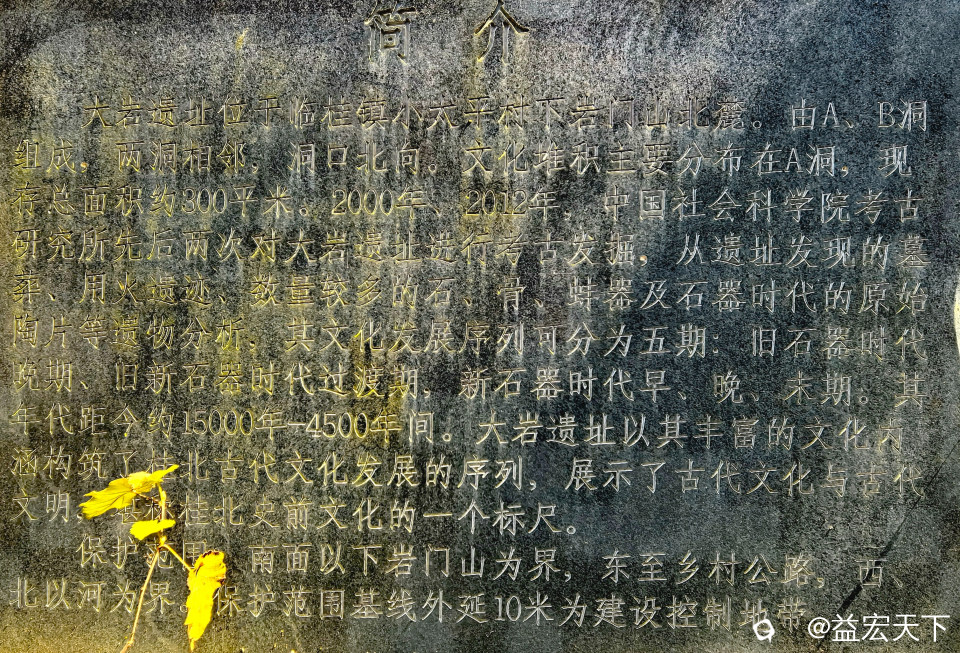 简介
大岩遗址位于临桂镇小太平村下岩门山北麓。由A、B洞
组成，两洞相邻，洞口北向。文化堆积主要分布在A洞，现
存总面积约300平米。2000年、2012年，中国社会科学院考古
研究所先后两次对大岩遗址进行考古发掘，从遗址发现的墓
葬、用火遗迹、数量较多的石、骨、蚌器及石器时代的原始
陶片等遗物分析，其文化发展序列可分为五期：旧石器时代
晚期、旧新石器时代过渡期，新石器时代早、晚、末期。其
年代距今约15000年-4500年间。大岩遗址以其丰富的文化内
涵构筑了桂北古代文化发展的序列，展示了古代文化与古代
文明，桂北史前文化的一个标尺。
保护范围 南面以下岩门山为界，东至乡村公路，西、
北以河为界。保护范围基线外延10米为建设控制地带。
@益宏天下